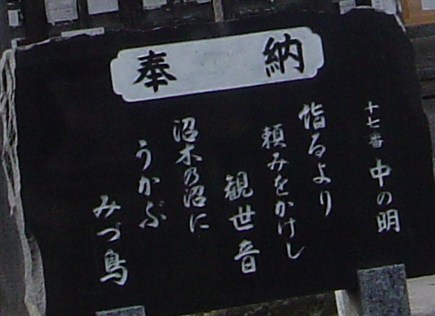 奉納
十七番 中の明
詣るより
頼みをかけし
観世音
沼木乃沼に
うかぶ
みづ鳥